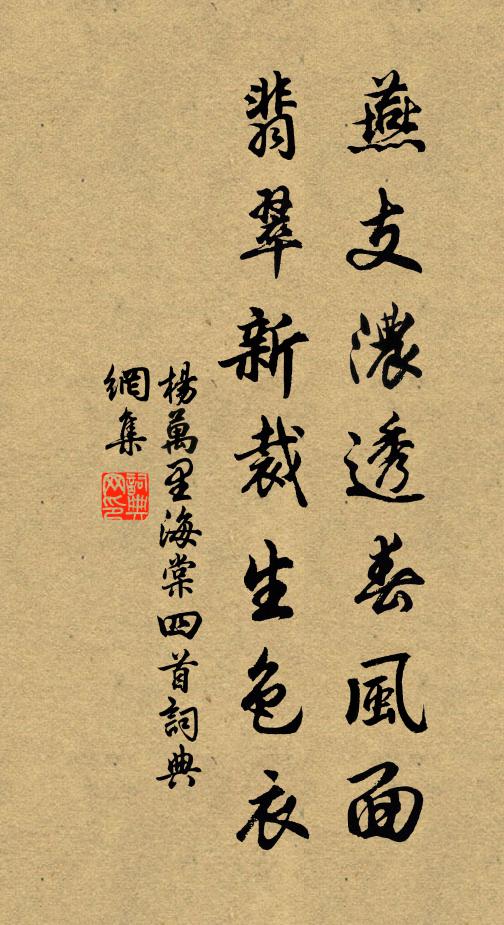 燕支濃透春風面
翡翠新裁生色衣
楊萬里海棠四首詞典
網集
詞典
网印